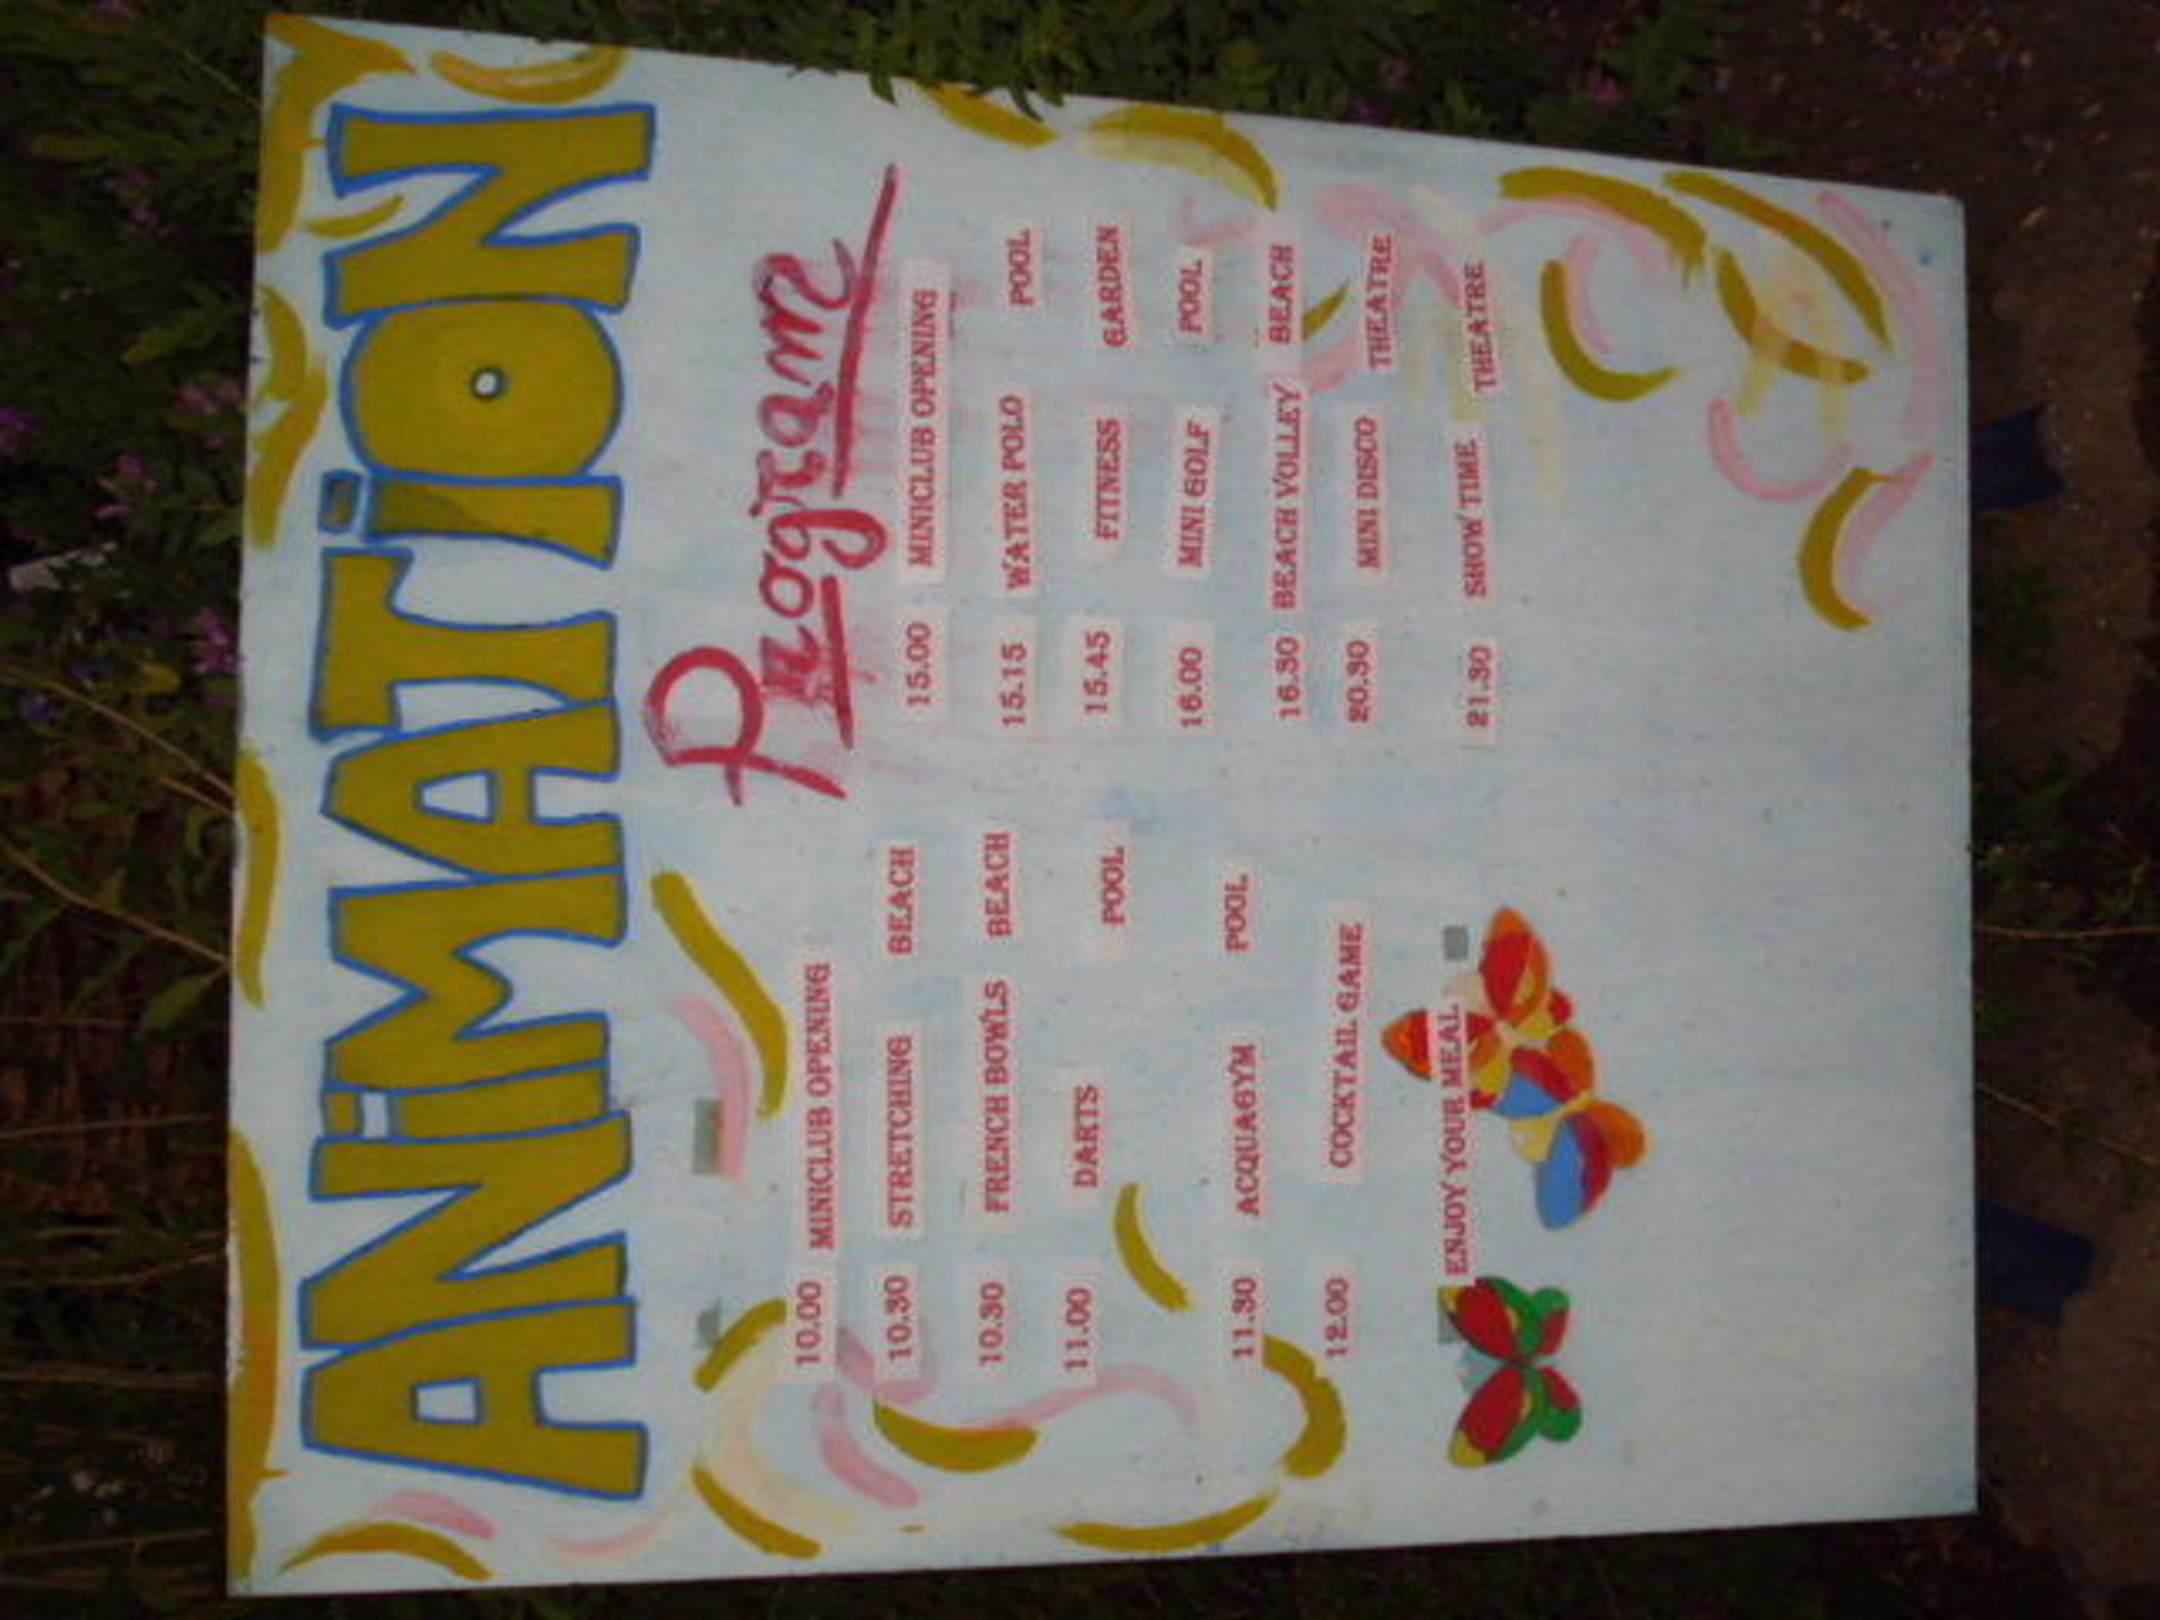 ANiMATiON
Program
10.00 MINICLUB OPENING
10.30 STRETCHING BEACH
10.30 FRENCH BOWLS BEACH
11.00 DARTS POOL
11.30 ACQUAGYM POOL
12.00 COCKTAIL GAME
ENJOY YOUR MEAL
15.00 MINICLUB OPENING
15.15 WATER POLO POOL
15.45 FITNESS GARDEN
16.00 MINI GOLF POOL
16.30 BEACH VOLLEY BEACH
20.30 MINI DISCO THEATRE
21.30 SHOW TIME THEATRE